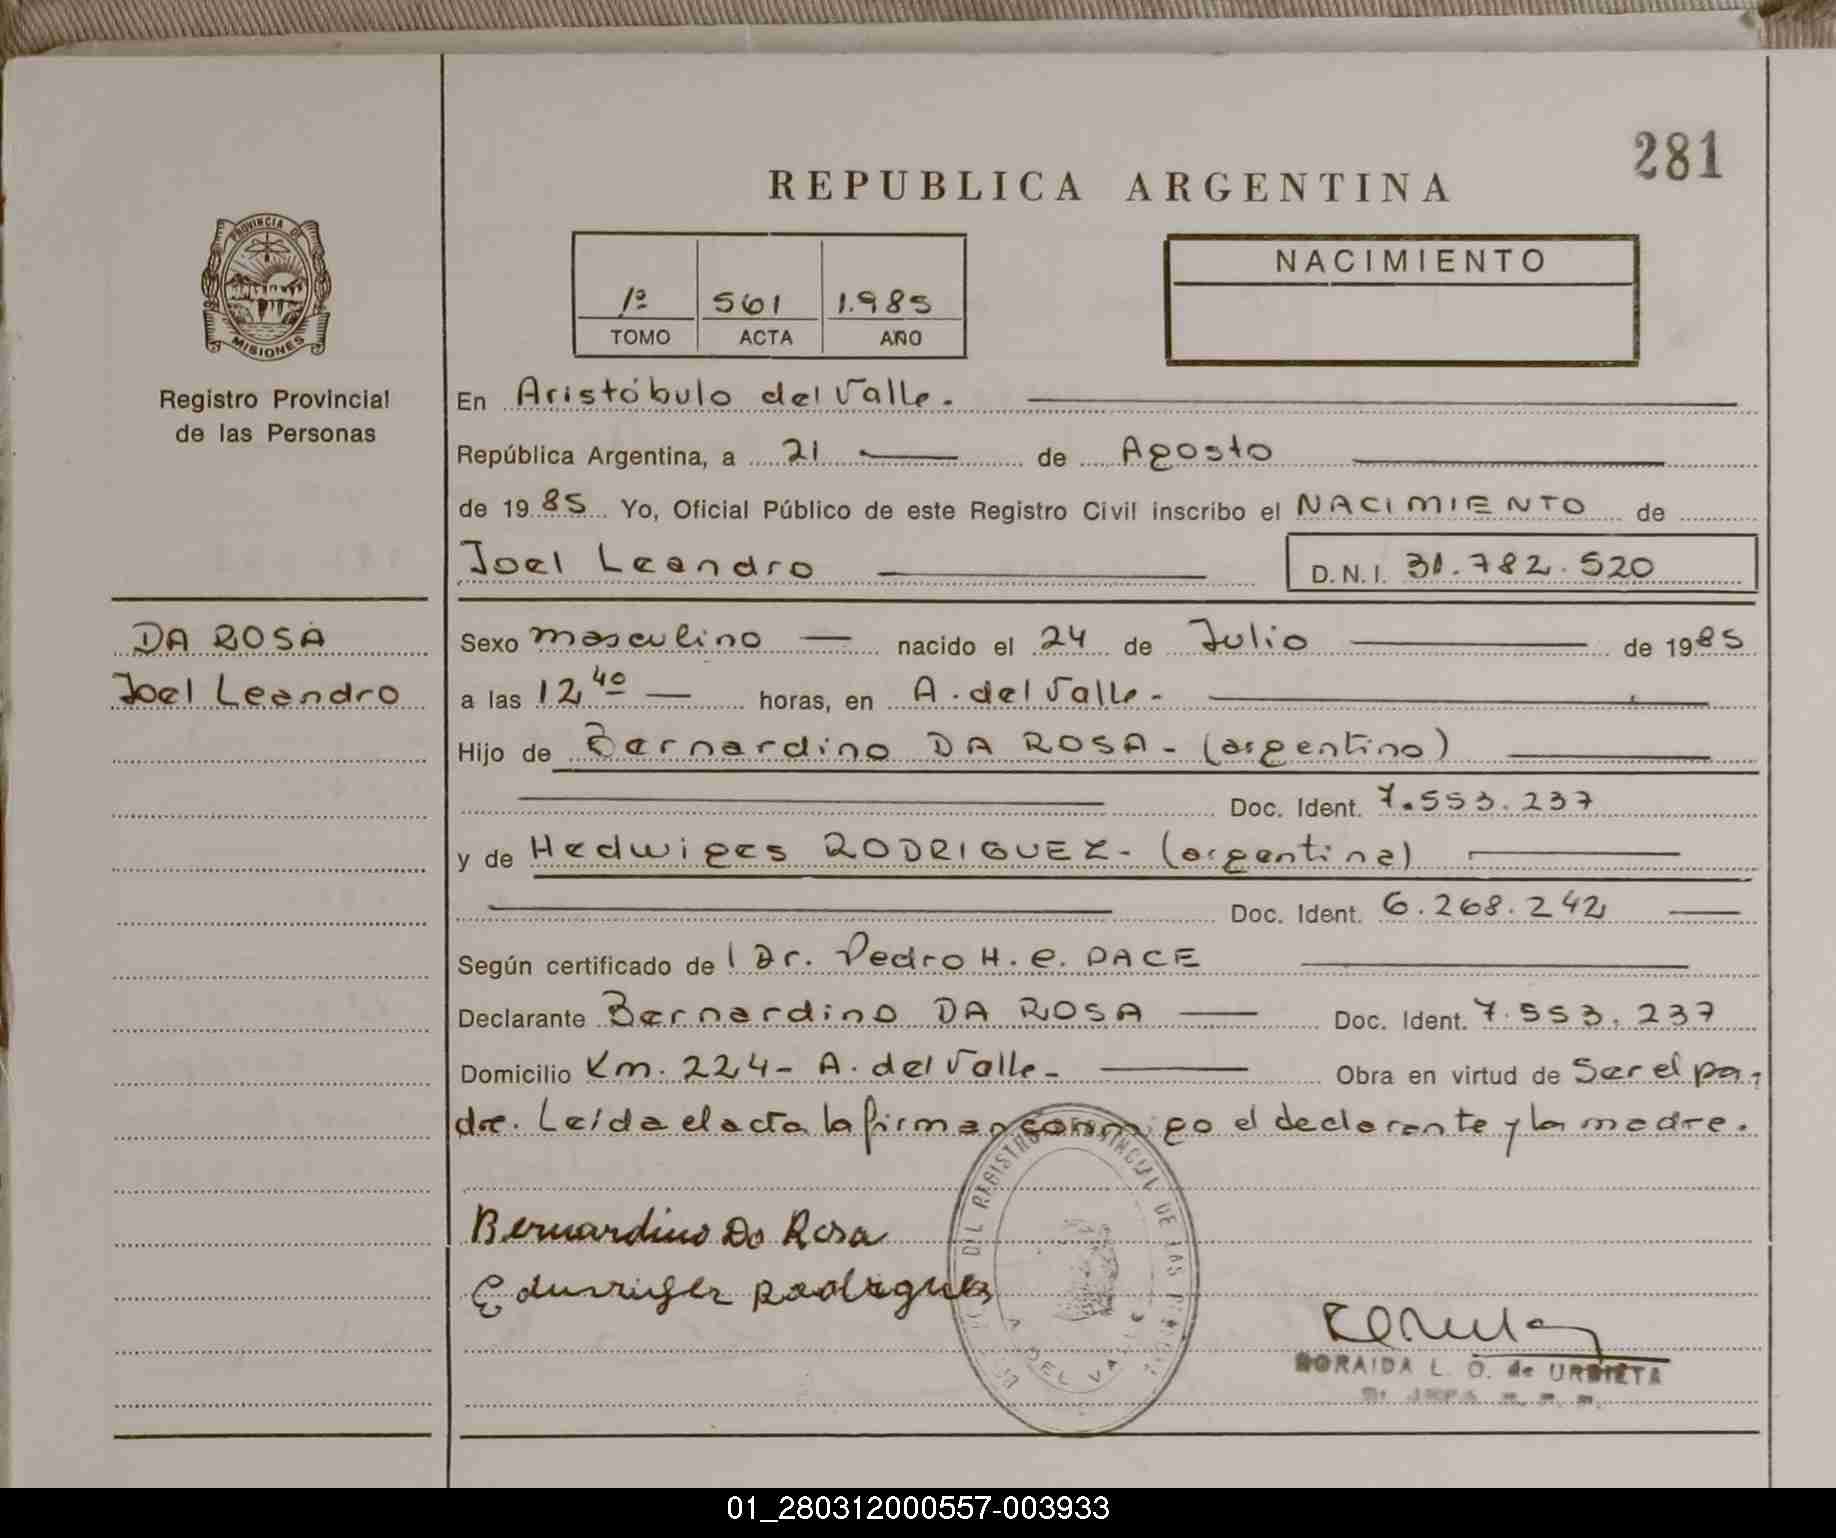 281
REPUBLICA ARGENTINA
PROVINCIA DE
MISIONES
Registro Provincial
de las Personas
1º 561 1.985
TOMO ACTA AÑO
NACIMIENTO
En Aristóbulo del Valle.
República Argentina, a 21 de Agosto
de 1985 Yo, Oficial Público de este Registro Civil inscribo el NACIMIENTO de
Joel Leandro
D.N.I. 31.782.520
DA ROSA
Joel Leandro
Sexo masculino nacido el 24 de Julio de 1985
a las 12 40 horas, en A. del Valle -
Hijo de Bernardino DA ROSA - (argentino)
Doc. Ident. 7.553.237
y de Hedwiges RODRIGUEZ - (argentina)
Doc. Ident. 6.268.242
Según certificado de l Dr. Pedro H. e. PACE
Declarante Bernardino DA ROSA Doc. Ident. 7.553.237
Domicilio Km. 224 - A. del Valle - Obra en virtud de Ser el pa-
dre. Leída el acta la firman conmigo el declarante y la madre.
DEL REGISTRO PROVINCIAL DE LAS
A. DEL VALLE
Bernardino Da Rosa
Eduwiges Rodrigues
NORAIDA L. O. de URBIETA
01_280312000557-003933